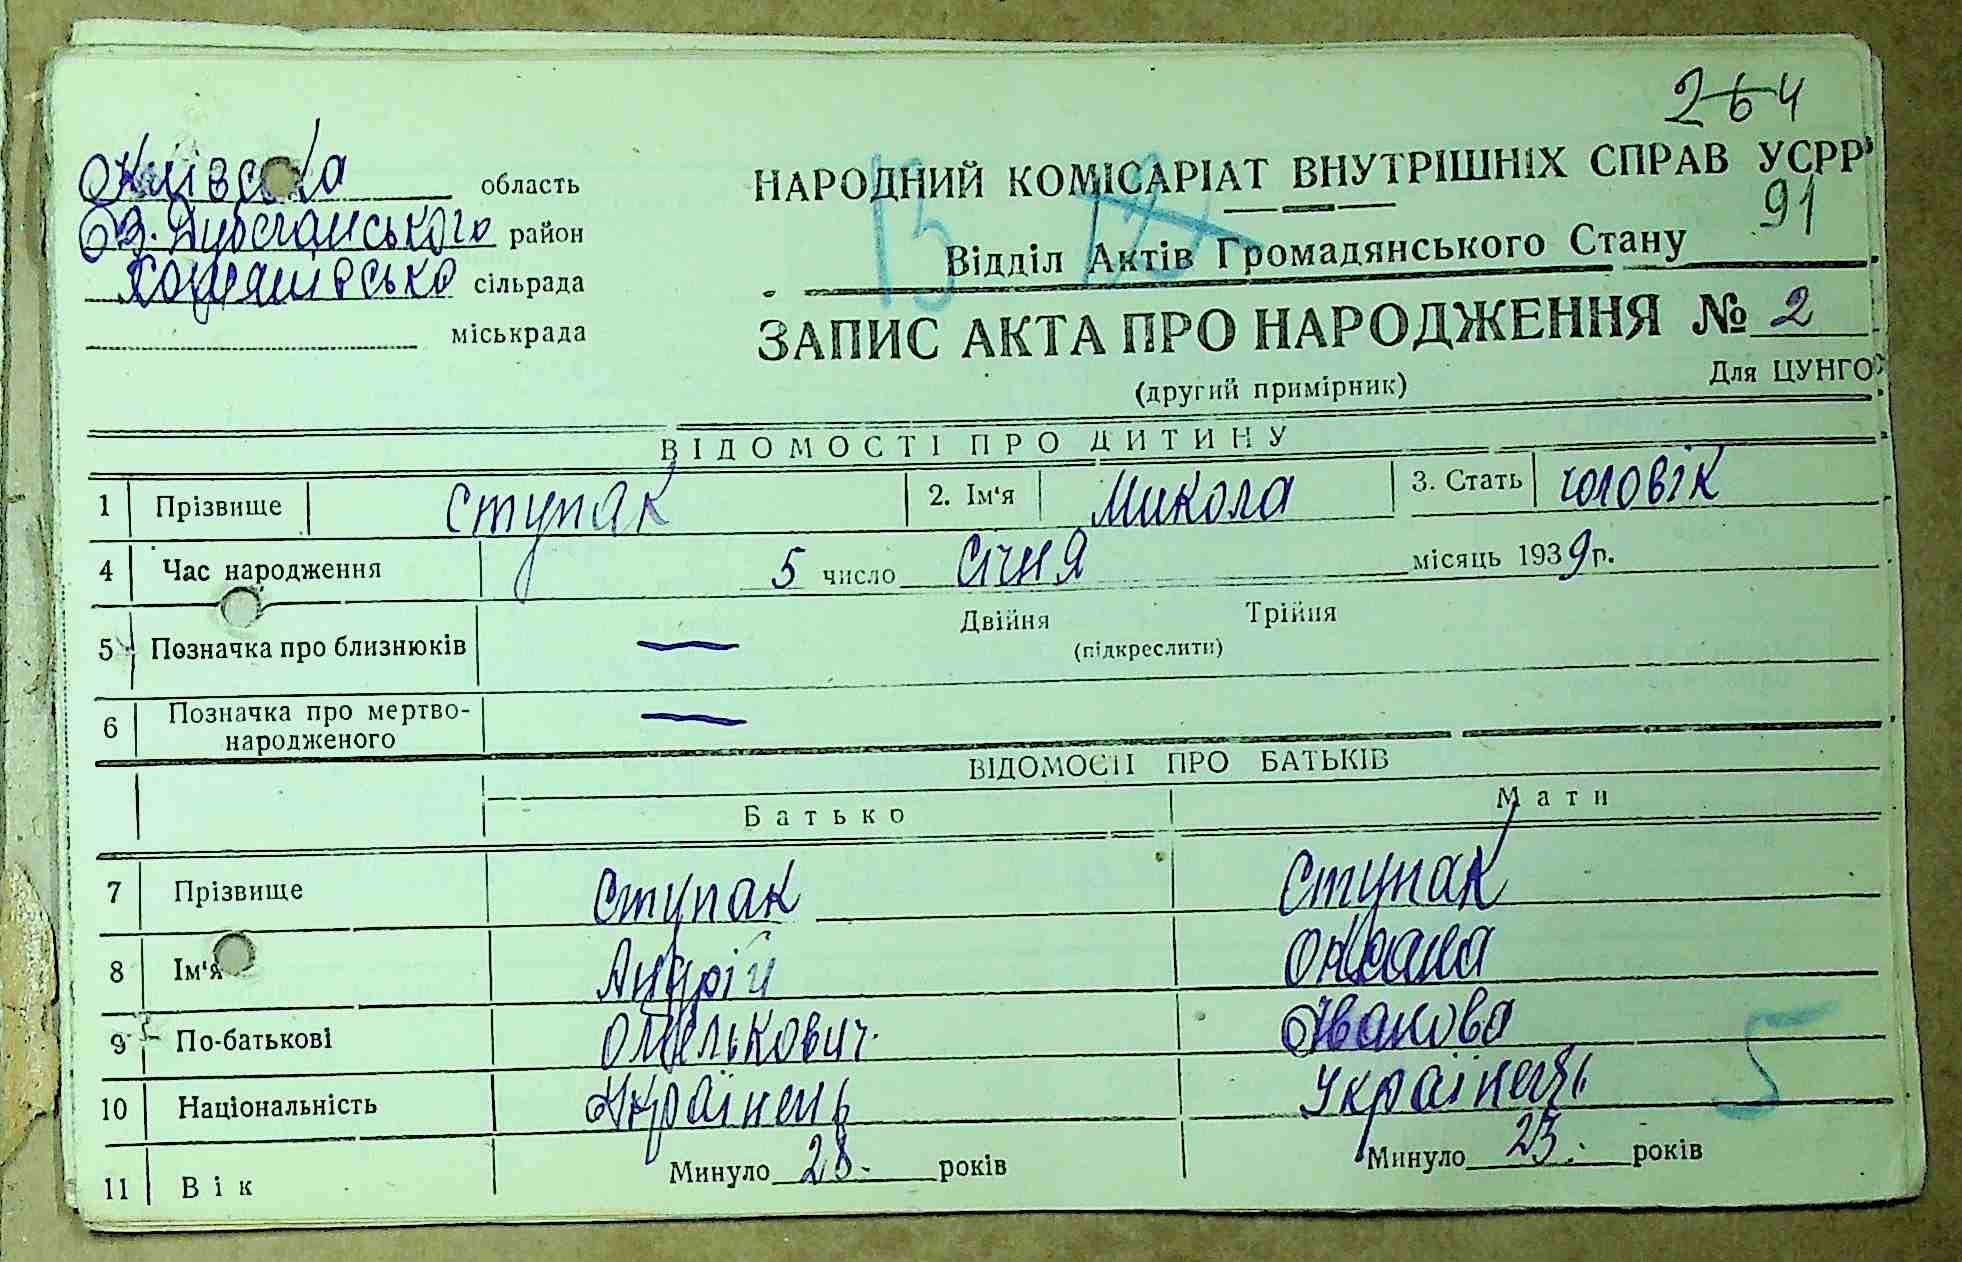 264
Київська область
Яз. Дубечанського район
сільрада
міськрада
НАРОДНИЙ КОМІСАРІАТ ВНУТРІШНІХ СПРАВ УСРР
13
91
Відділ Актів Громадянського Стану
ЗАПИС АКТА ПРО НАРОДЖЕННЯ № 2
(другий примірник)
Для ЦУНГО
ВІДОМОСТІ ПРО ДИТИНУ
1 Прізвище Ступак 2. Ім‘я Микола 3. Стать чоловік
4 Час народження 5 число січня місяць 1939 р.
5 Позначка про близнюків — Двійня Трійня
(підкреслити)
6 Позначка про мертво-
народженого —
ВІДОМОСТІ ПРО БАТЬКІВ
Батько Мати
7 Прізвище Ступак Ступак
8 Ім‘я Андрій Оксана
9 По-батькові Омелькович. Іванова
5
10 Національність Українець Українець
11 Вік Минуло 28. років Минуло 23. років